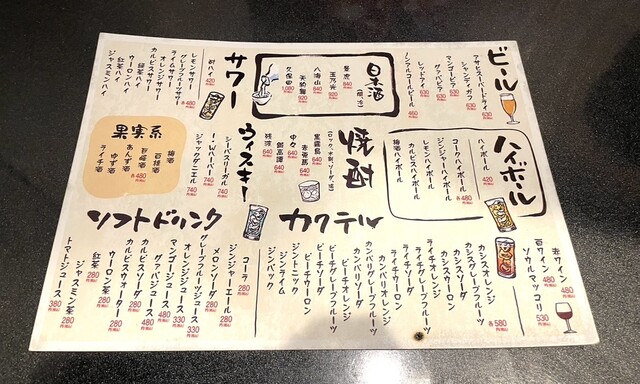 ビール
アサヒスーパードライ
シャンディガフ
マンゴービア
グァバビア
レッドアイ
ノンアルコールビール
460
日本酒
840
玉乃光
920
八海山
840
天狗舞
920
久保田
1,080
サワー
酎ハイ
420
レモンサワー
グレープフルーツサワー
ライムサワー
オレンジサワー
カルピスサワー
紅茶ハイ
ウーロンハイ
緑茶ハイ
ジャスミンハイ
各480
ハイボール
ハイボール
420
コークハイボール
ジンジャーハイボール
レモンハイボール
カルピスハイボール
梅酒ハイボール
各480
焼酎
黒霧島
640
赤兎馬
640
中々
640
640
残波
640
ウィスキー
シーバスリーガル
740
I・Wハーパー
740
ジャックダニエル
740
果実系
梅酒
あんず酒
ゆず酒
ライチ酒
各480
赤ワイン
480
白ワイン
480
ソウルマッコリ
530
カクテル
カシスオレンジ
カシスグレープフルーツ
カシスソーダ
カシスウーロン
ライチオレンジ
ライチグレープフルーツ
ライチソーダ
ライチウーロン
カンパリオレンジ
カンパリグレープフルーツ
カンパリソーダ
ピーチオレンジ
ピーチグレープフルーツ
ピーチソーダ
ピーチウーロン
ジントニック
ジンライム
ジンバック
各580
ソフトドリンク
コーラ
280
ジンジャーエール
280
メロンソーダ
280
グレープフルーツジュース
330
オレンジジュース
330
マンゴージュース
480
グァバジュース
480
カルピスソーダ
280
カルピスウォーター
280
ウーロン茶
280
紅茶
280
ジャスミン茶
280
トマトジュース
380